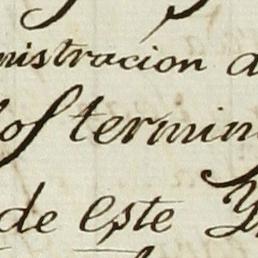 nistracion d
los termin
de este Y